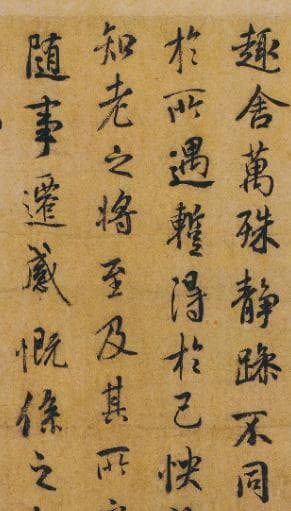 趣舍萬殊静躁不同
於所遇蹔得於己怏
知老之将至及其所
随事遷感慨係之